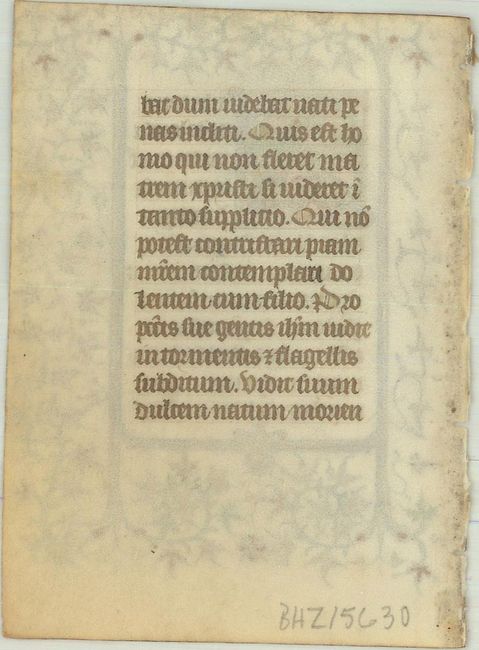 bat dum uidebat nati pe
nas incliti. Quis est ho
mo qui non fleret ma
trem xpristi si uideret ī
tanto supplicio. Qui nō
potest contristari piam
mr̄em contemplari do
lentem cum filio. Pro
pctīs sue gentis ihm̄ uidit
in tormentis ⁊ flagellis
subditum. Vidit suum
dulcem natum morien
BHZ15630